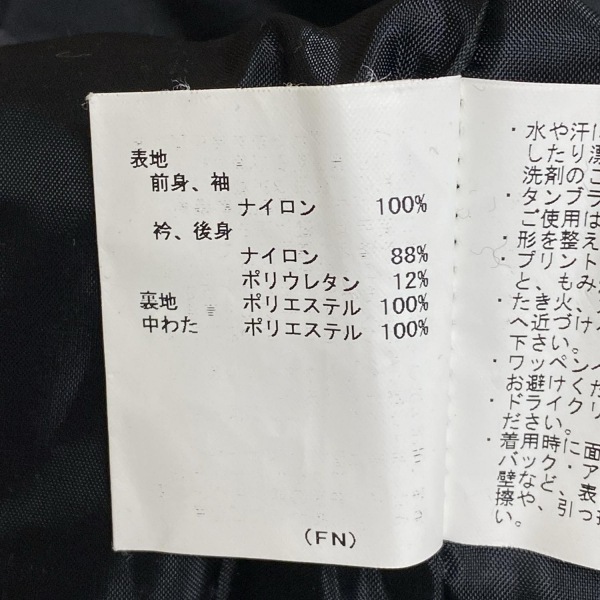 表地
前身、袖
ナイロン 100%
衿、後身
ナイロン 88%
ポリウレタン 12%
裏地 ポリエステル 100%
中わた ポリエステル 100%
(FN)
・水や汗に
したり漂
洗剤のご
・タンブラ
ご使用は
・形を整え
・プリント
と、もみ
・たき火、
へ近づけ
下さい。
・ワッペン
お避けくだ
・ドライクリ
ださい。
・着用時に面
バック・ア
など、表
壁や、引っ
擦
い。